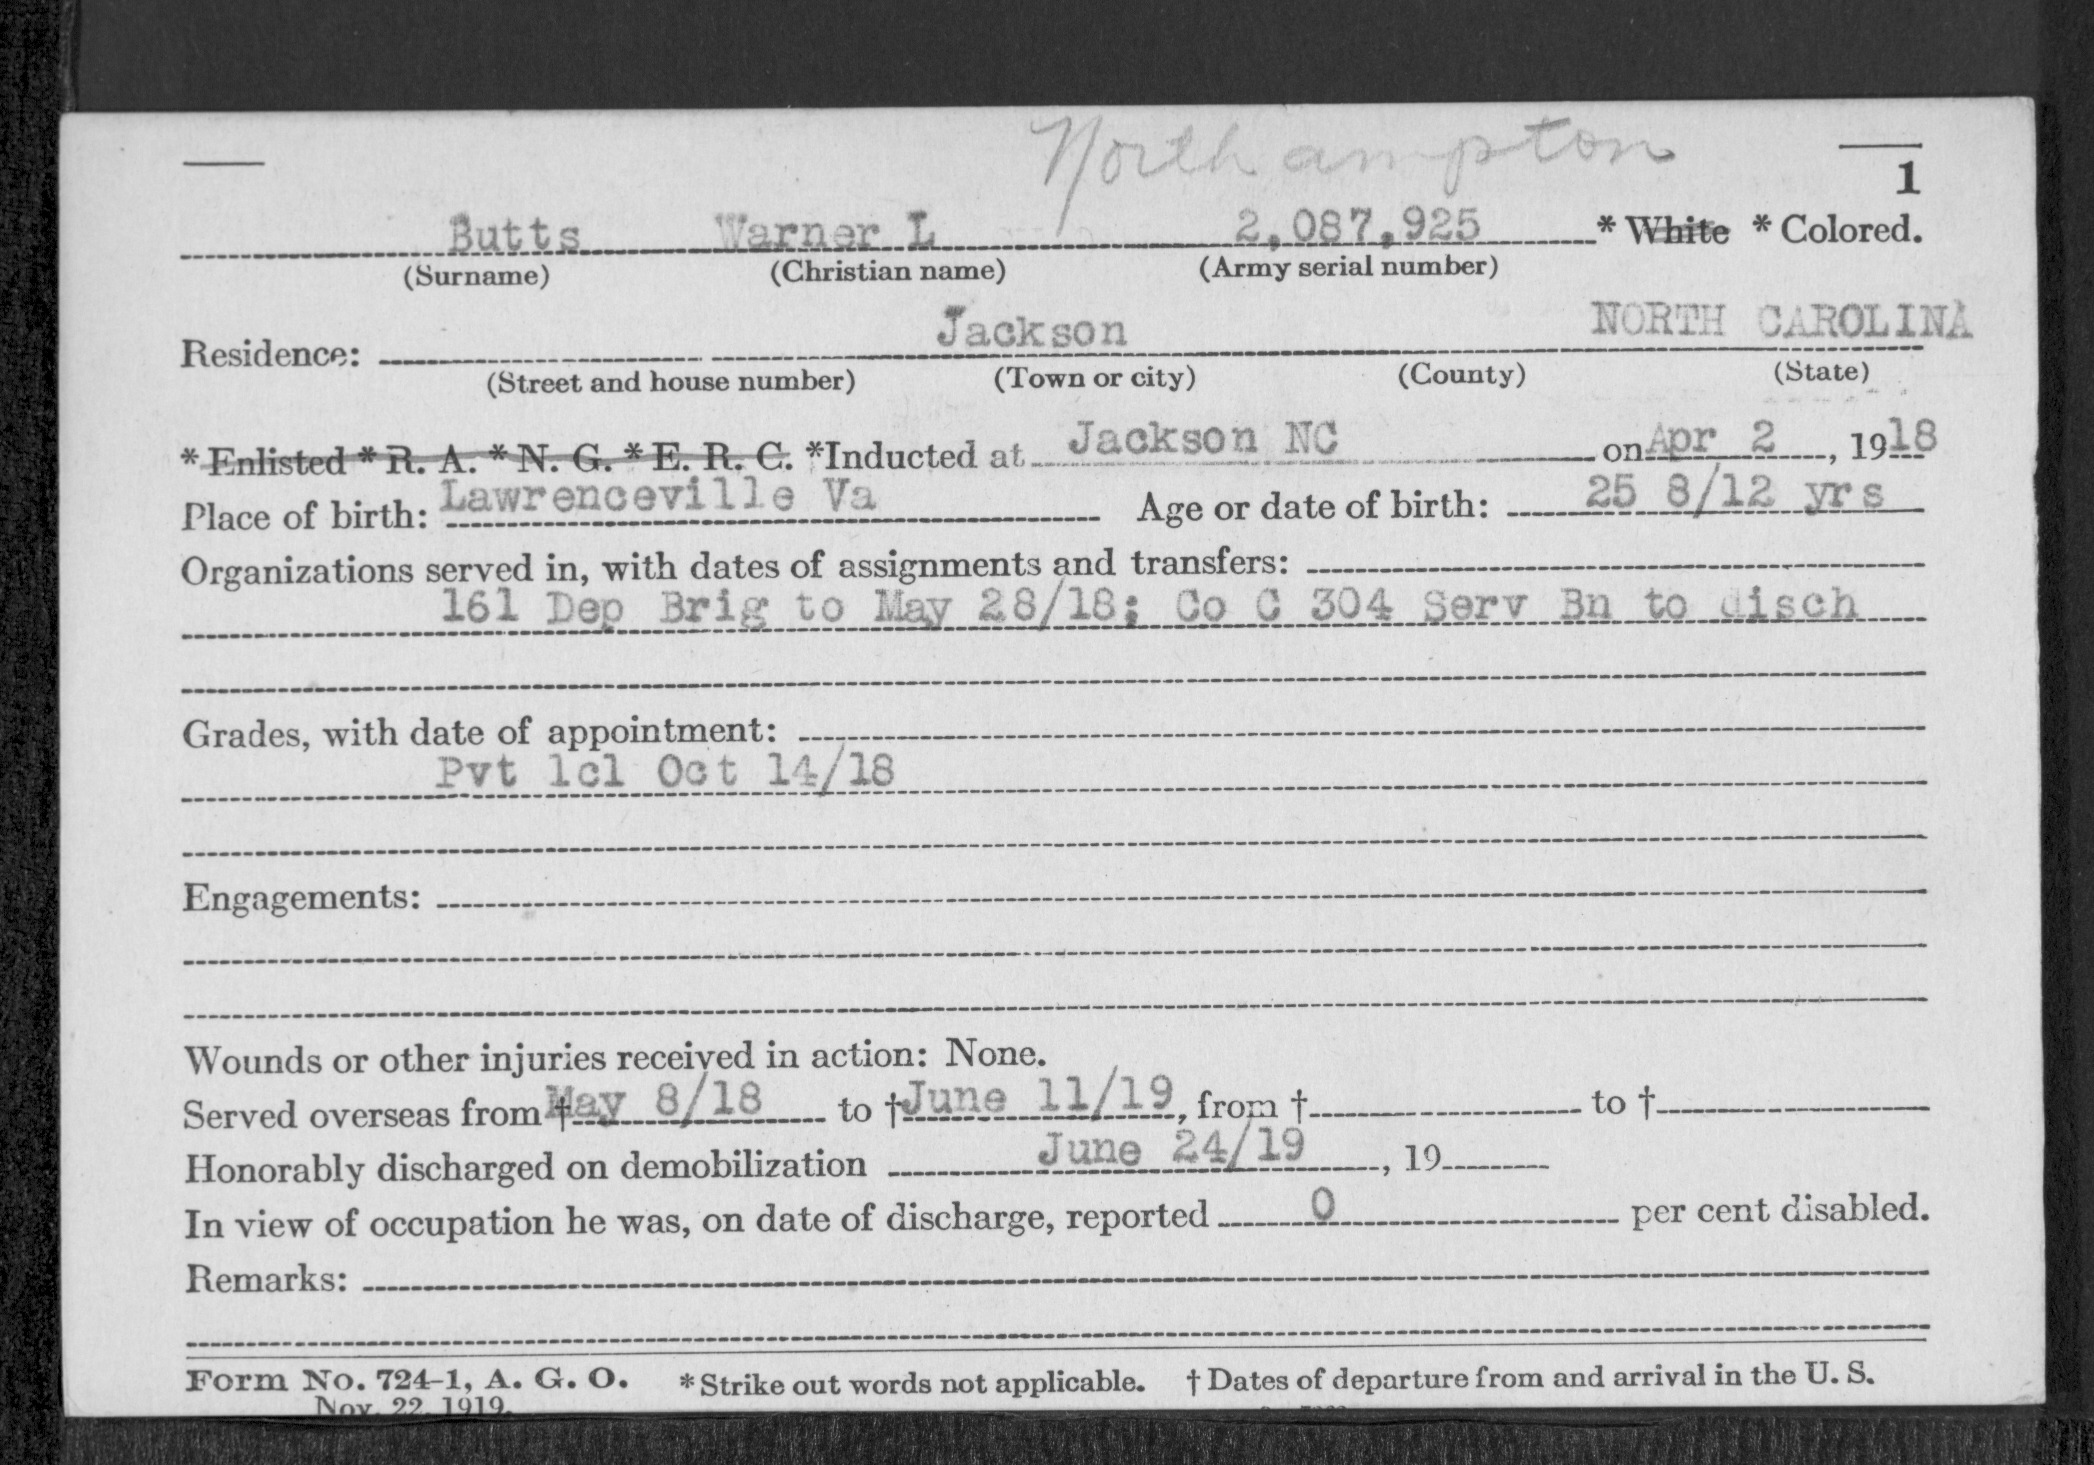 Northampton
1
Butts Warner L 2,087,925 * White * Colored.
(Surname) (Christian name) (Army serial number)
Jackson NORTH CAROLINA
Residence:
(Street and house number) (Town or city) (County) (State)
* Enlisted * R. A. * N. G. * E. R. C. *Inducted at Jackson NC on Apr 2, 1918
Place of birth: Lawrenceville Va Age or date of birth: 25 8/12 yrs
Organizations served in, with dates of assignments and transfers:
161 Dep Brig to May 28/18; Co C 304 Serv Bn to disch
Grades, with date of appointment:
Pvt 1cl Oct 14/18
Engagements:
Wounds or other injuries received in action: None.
Served overseas from † May 8/18 to † June 11/19, from † to †
Honorably discharged on demobilization June 24/19, 19
In view of occupation he was, on date of discharge, reported 0 per cent disabled.
Remarks:
Form No. 724-1, A. G. O. * Strike out words not applicable. † Dates of departure from and arrival in the U. S.
Nov. 22, 1919.